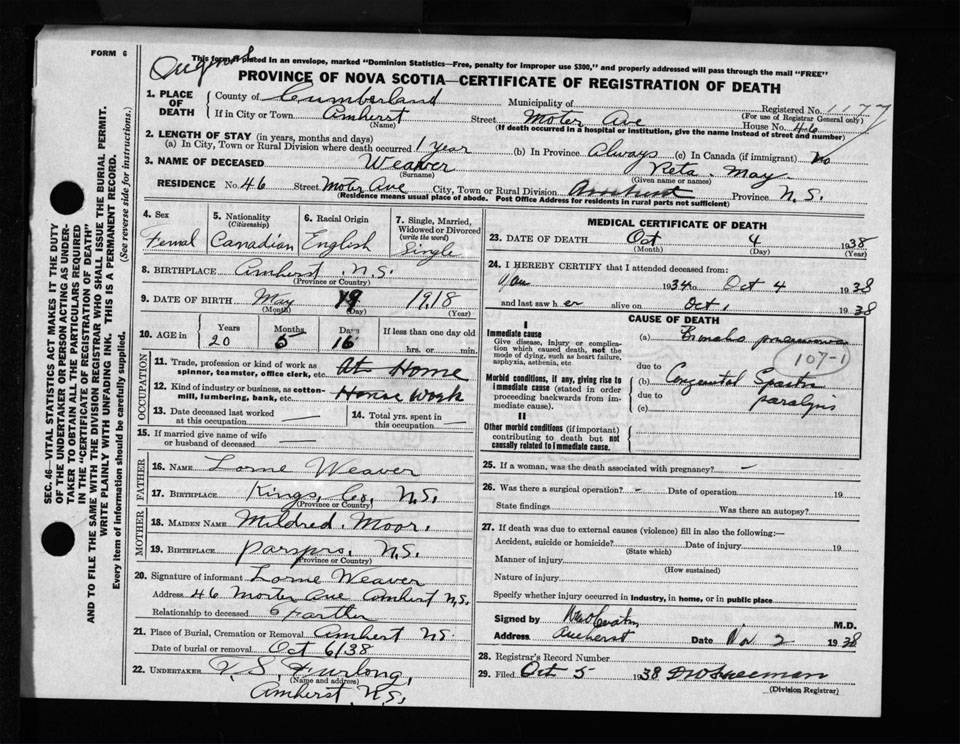 FORM 6
Original
This form if placed in an envelope, marked "Dominion Statistics—Free, penalty for improper use $300," and properly addressed will pass through the mail "FREE"
PROVINCE OF NOVA SCOTIA—CERTIFICATE OF REGISTRATION OF DEATH
1. PLACE OF DEATH
County of Cumberland Municipality of Registered No. 1177
(For use of Registrar General only)
If in City or Town Amherst Street Moter Ave House No. 46
(Name) (If death occurred in a hospital or institution, give the name instead of street and number)
2. LENGTH OF STAY (in years, months and days)
(a) In City, Town or Rural Division where death occurred 1 Year (b) In Province Always (c) In Canada (if immigrant) No
3. NAME OF DECEASED Weaver Reta May
(Surname) (Given name or names)
RESIDENCE No. 46 Street Moter Ave City, Town or Rural Division Amherst Province N.S.
(Residence means usual place of abode. Post Office Address for residents in rural parts not sufficient)
SEC. 46—VITAL STATISTICS ACT MAKES IT THE DUTY
OF THE UNDERTAKER OR PERSON ACTING AS UNDER-
TAKER TO OBTAIN ALL THE PARTICULARS REQUIRED
IN THE "CERTIFICATE OF REGISTRATION OF DEATH"
AND TO FILE THE SAME WITH THE DIVISION REGISTRAR WHO SHALL ISSUE THE BURIAL PERMIT.
WRITE PLAINLY WITH UNFADING INK. THIS IS A PERMANENT RECORD.
Every item of information should be carefully supplied. (See reverse side for instructions.)
4. Sex
Femal
5. Nationality
(Citizenship)
Canadian
6. Racial Origin
English
7. Single, Married, Widowed or Divorced
(write the word)
Single
8. BIRTHPLACE Amherst N.S.
(Province or Country)
9. DATE OF BIRTH May 19 1918
(Month) (Day) (Year)
10. AGE in Years Months Days If less than one day old
20 5 16 hrs. or min.
OCCUPATION
11. Trade, profession or kind of work as At Home
spinner, teamster, office clerk, etc.
12. Kind of industry or business, as cotton- House Work
mill, lumbering, bank, etc.
13. Date deceased last worked at this occupation —
14. Total yrs. spent in this occupation —
15. If married give name of wife or husband of deceased —
FATHER
16. NAME Lorne Weaver
17. BIRTHPLACE Kings, Co, N.S.
(Province or Country)
MOTHER
18. MAIDEN NAME Mildred Moor.
19. BIRTHPLACE Parspro. N.S.
(Province or Country)
20. Signature of informant Lorne Weaver
Address 46 Moter Ave Amherst N.S.
Relationship to deceased Farther
21. Place of Burial, Cremation or Removal Amherst N.S.
Date of burial or removal Oct 6/38
22. UNDERTAKER V.S. Furlong,
(Name and address)
Amherst N.S.
MEDICAL CERTIFICATE OF DEATH
23. DATE OF DEATH Oct 4 1938
(Month) (Day) (Year)
24. I HEREBY CERTIFY that I attended deceased from:
Jan 1934 to Oct 4 1938
and last saw her alive on Oct 1 1938
CAUSE OF DEATH
I
Immediate cause
Give disease, injury or complication which caused death, not the mode of dying, such as heart failure, asphyxia, asthenia, etc
(a) Broncho pneumonia
107-1
due to
Morbid conditions, if any, giving rise to immediate cause (stated in order proceeding backwards from immediate cause).
(b) Congenital Spastic
due to paralysis
(c)
II
Other morbid conditions (if important) contributing to death but not causally related to immediate cause.
25. If a woman, was the death associated with pregnancy? —
26. Was there a surgical operation? — Date of operation 19
State findings Was there an autopsy?
27. If death was due to external causes (violence) fill in also the following:—
Accident, suicide or homicide? Date of injury 19
(State which)
Manner of injury
(How sustained)
Nature of injury
Specify whether injury occurred in industry, in home, or in public place
Signed by M.D.
Address Amherst Date Nov 2 1938
28. Registrar's Record Number
29. Filed Oct 5 1938
(Division Registrar)